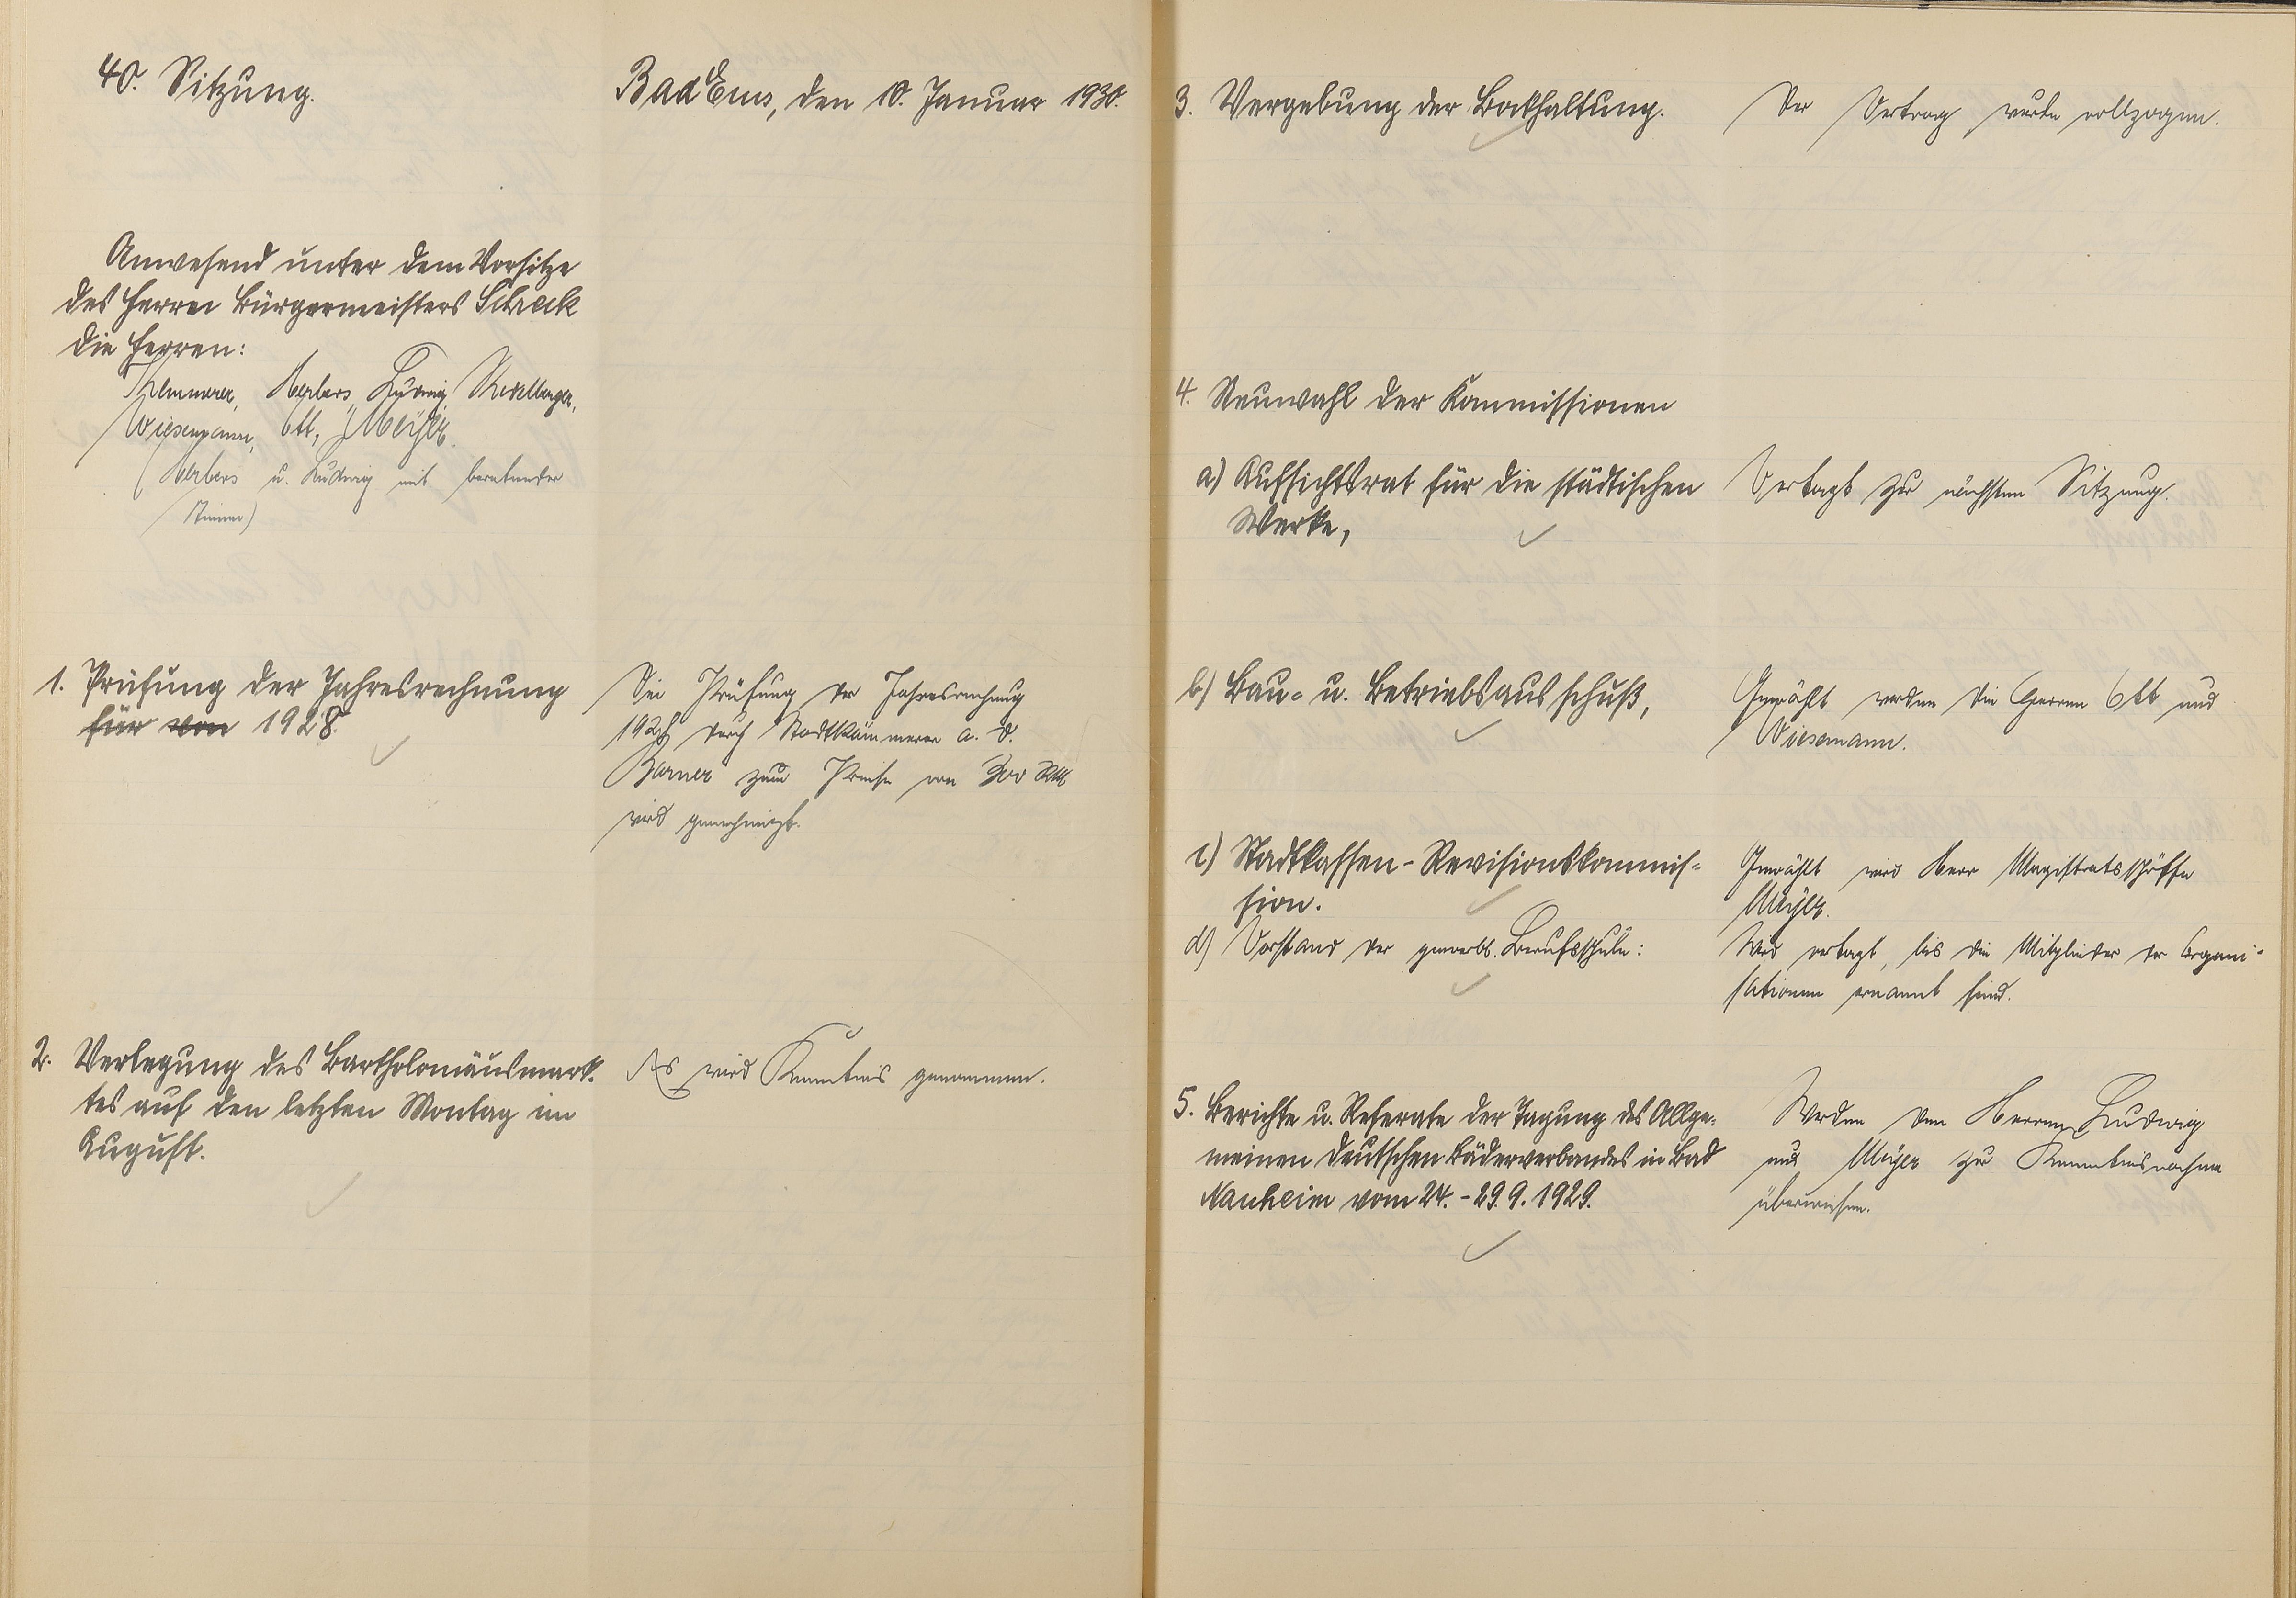 40. Sitzung.
Bad Ems, den 10. Januar 1930.
Anwesend unter dem Vorsitze
des Herrn Bürgermeisters Schreck
die Herren:
Herbers, Ludwig,
Wiesemann, Ott, Meyer.
(Herbers u. Ludwig mit beratender
Stimme)
1. Prüfung der Jahresrechnung
für von 1928.
Die Prüfung der Jahresrechnung
1928 durch Stadtkämmerer a. D.
zum Preise von 300 RM
wird genehmigt.
2. Verlegung des Bartholomäusmark-
tes auf den letzten Montag im
August.
Es wird Kenntnis genommen.
3. Vergebung der Bockhaltung.
Der Vertrag wurde vollzogen.
4. Neuwahl der Kommissionen
a) Aufsichtsrat für die städtischen
Werke,
Vertagt zur nächsten Sitzung.
b) Bau- u. Betriebsausschuß,
Gewählt werden die Herren Ott und
Wiesemann.
c) Stadtkassen-Revisionskommis-
sion.
Gewählt wird Herr Magistratsschöffe
Meyer.
d) Vorstand der gewerbl. Berufsschule:
Wird vertagt, bis die Mitglieder der Organi-
sationen ernannt sind.
5. Berichte u. Referate der Tagung des Allge-
meinen Deutschen Bäderverbandes in Bad
Nauheim vom 24.-29.9.1929.
Werden den Herren Ludwig
und Meyer zur Kenntnisnahme
überwiesen.